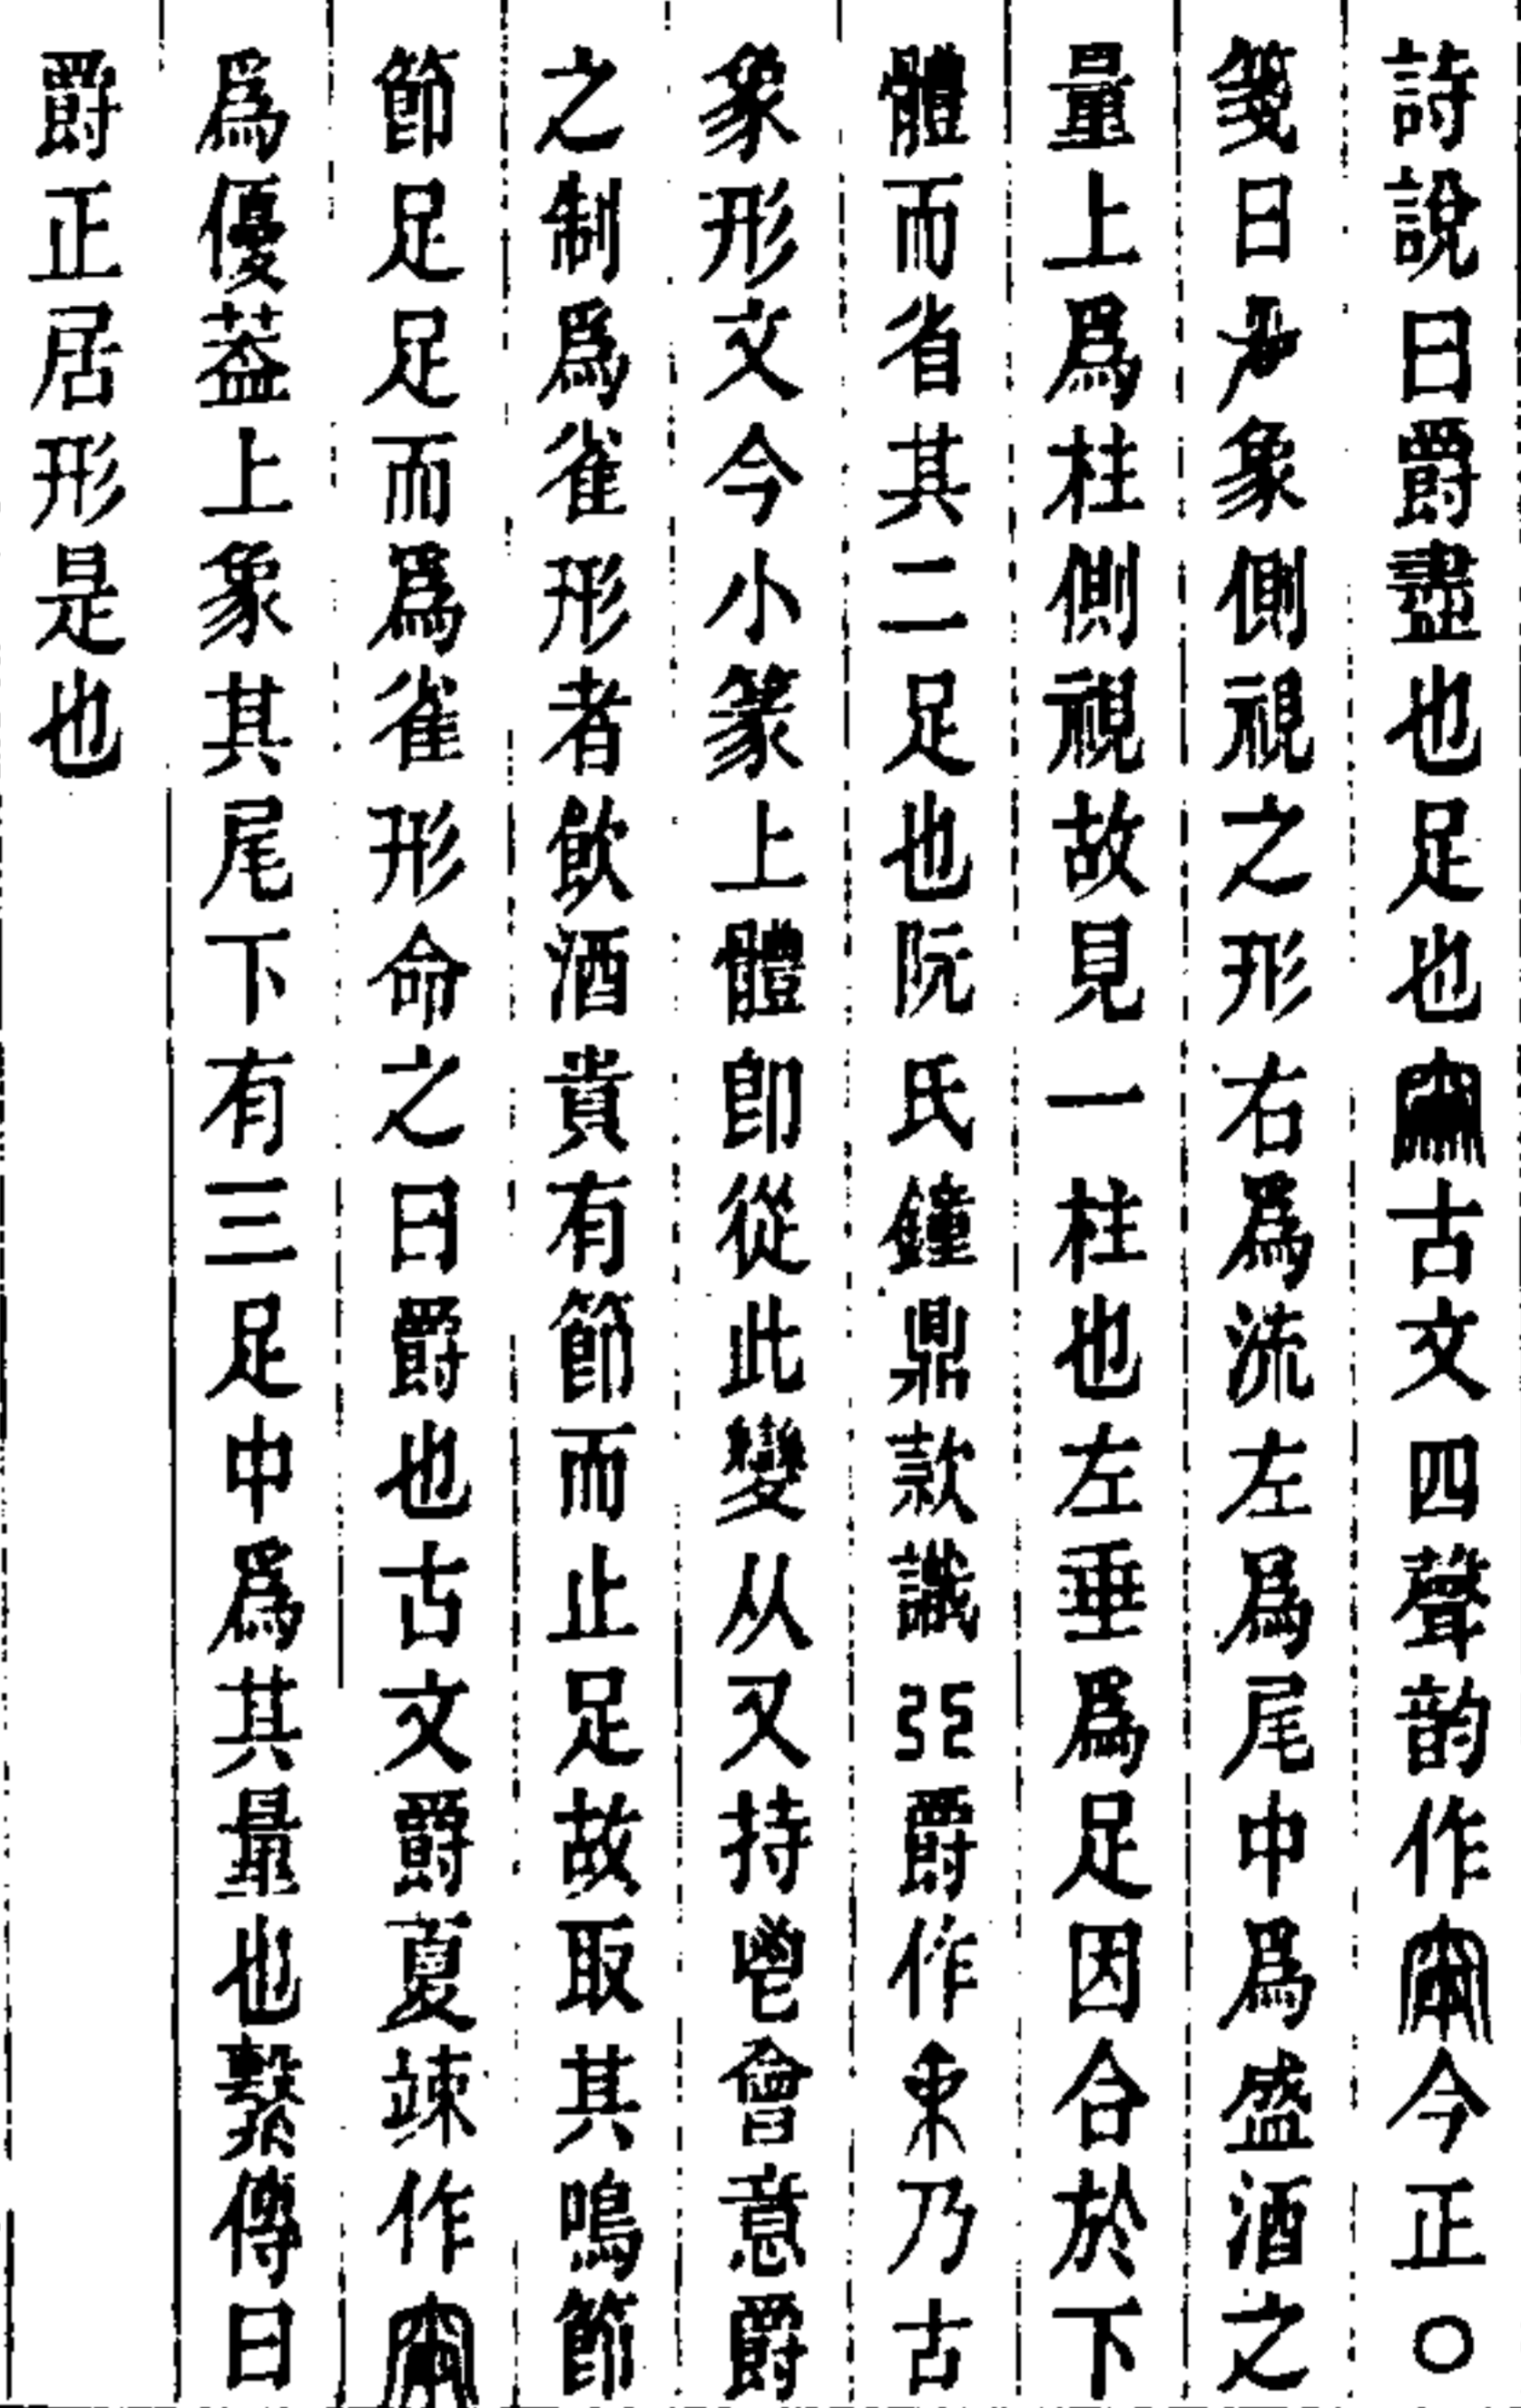 詩說曰爵盡也足也古文四聲韵作今正○
箋曰象側視之形右爲流左爲尾中爲盛酒之
量上爲柱側視故見一柱也左垂爲足因合於下
體而省其二足也阮氏鐘鼎款識亞爵作乃古
象形文今小篆上體卽從此變从又持鬯會意爵
之制爲雀形者飲酒貴有節而止足故取其鳴節
節足足而爲雀形命之曰爵也古文爵夏竦作
爲優葢上象其尾下有三足中爲其量也繫傳曰
爵正居形是也